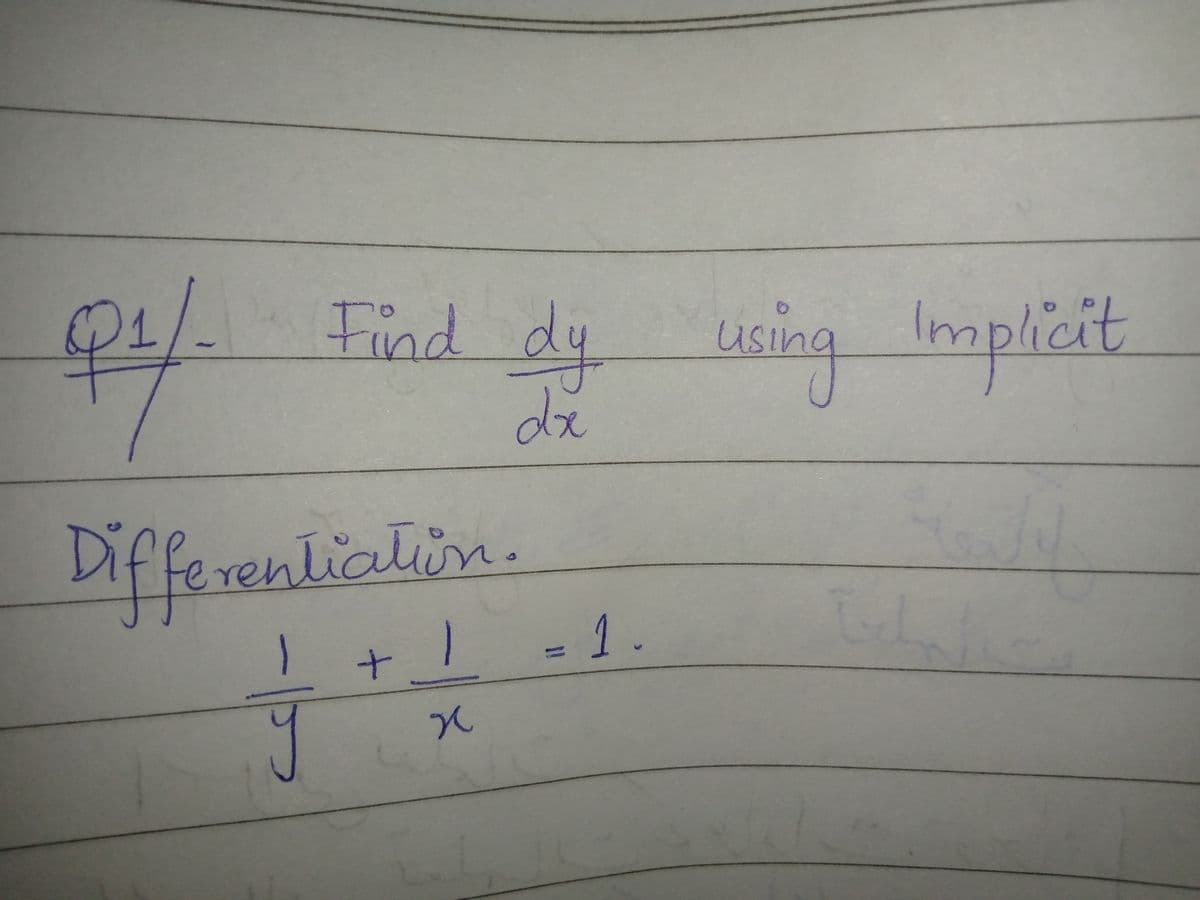 Q1/- Find dy/dx using Implicit
Differentiation.
1/y + 1/x = 1.